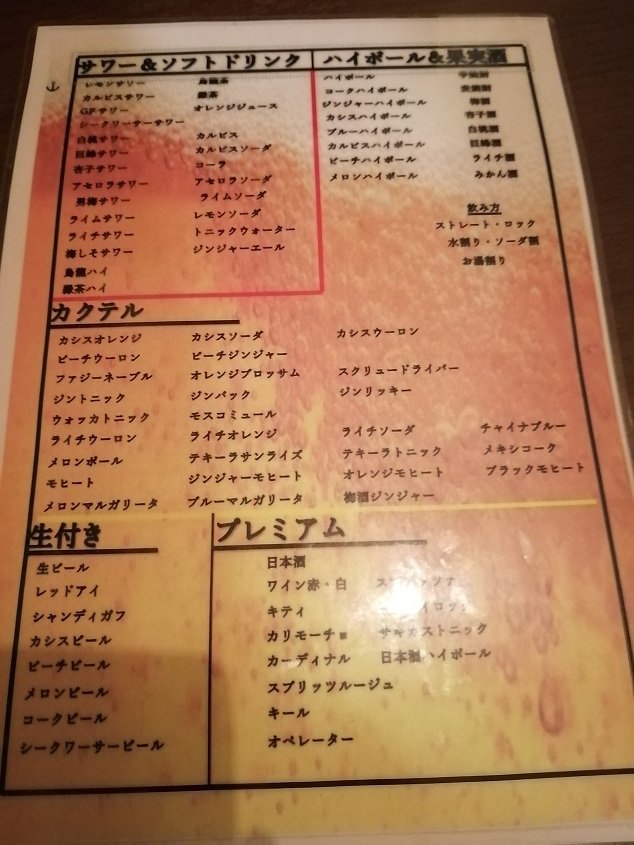 サワー&ソフトドリンク
レモンサワー 烏龍茶
カルピスサワー 緑茶
GFサワー オレンジジュース
シークワーサーサワー
白桃サワー カルピス
巨峰サワー カルピスソーダ
杏子サワー コーラ
アセロラサワー アセロラソーダ
男梅サワー ライムソーダ
ライムサワー レモンソーダ
ライチサワー トニックウォーター
梅しそサワー ジンジャーエール
烏龍ハイ
緑茶ハイ
ハイボール&果実酒
ハイボール 芋焼酎
コークハイボール 麦焼酎
ジンジャーハイボール 梅酒
カシスハイボール 杏子酒
ブルーハイボール 白桃酒
カルピスハイボール 巨峰酒
ピーチハイボール ライチ酒
メロンハイボール みかん酒
飲み方
ストレート・ロック
水割り・ソーダ割
お湯割り
カクテル
カシスオレンジ カシスソーダ カシスウーロン
ピーチウーロン ピーチジンジャー
ファジーネーブル オレンジブロッサム スクリュードライバー
ジントニック ジンバック ジンリッキー
ウォッカトニック モスコミュール
ライチウーロン ライチオレンジ ライチソーダ チャイナブルー
メロンボール テキーラサンライズ テキーラトニック メキシコーク
モヒート ジンジャーモヒート オレンジモヒート ブラックモヒート
メロンマルガリータ ブルーマルガリータ 梅酒ジンジャー
生付き
生ビール
レッドアイ
シャンディガフ
カシスビール
ピーチビール
メロンビール
コークビール
シークワーサービール
プレミアム
日本酒
ワイン赤・白
キティ
カリモーチョ
カーディナル 日本酒ハイボール
スプリッツルージュ
キール
オペレーター